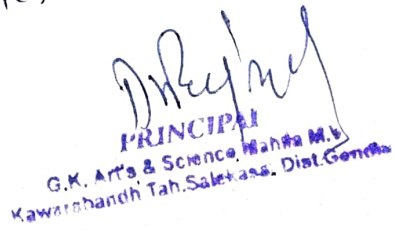 PRINCIPAL
G.K. Art's & Science Mahila M.V
Kawarabandh Tah.Salekasa. Dist.Gondia